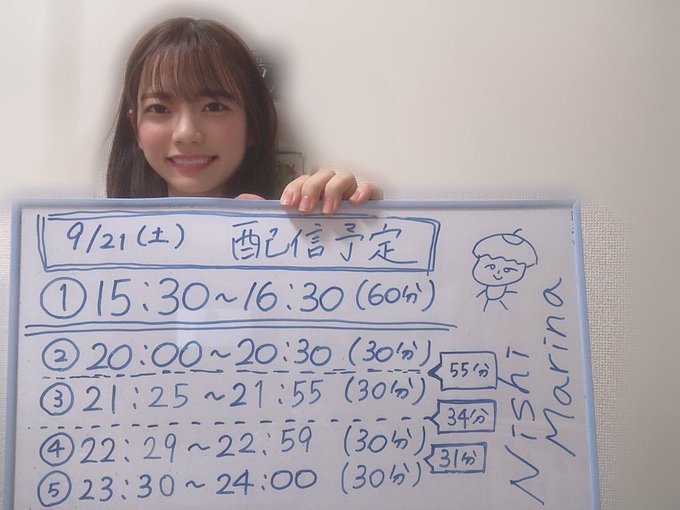 9/21(土) 配信予定
① 15:30～16:30 (60分)
② 20:00～20:30 (30分)
55分
③ 21:25～21:55 (30分)
34分
④ 22:29～22:59 (30分)
31分
⑤ 23:30～24:00 (30分)
Nishi
Marina